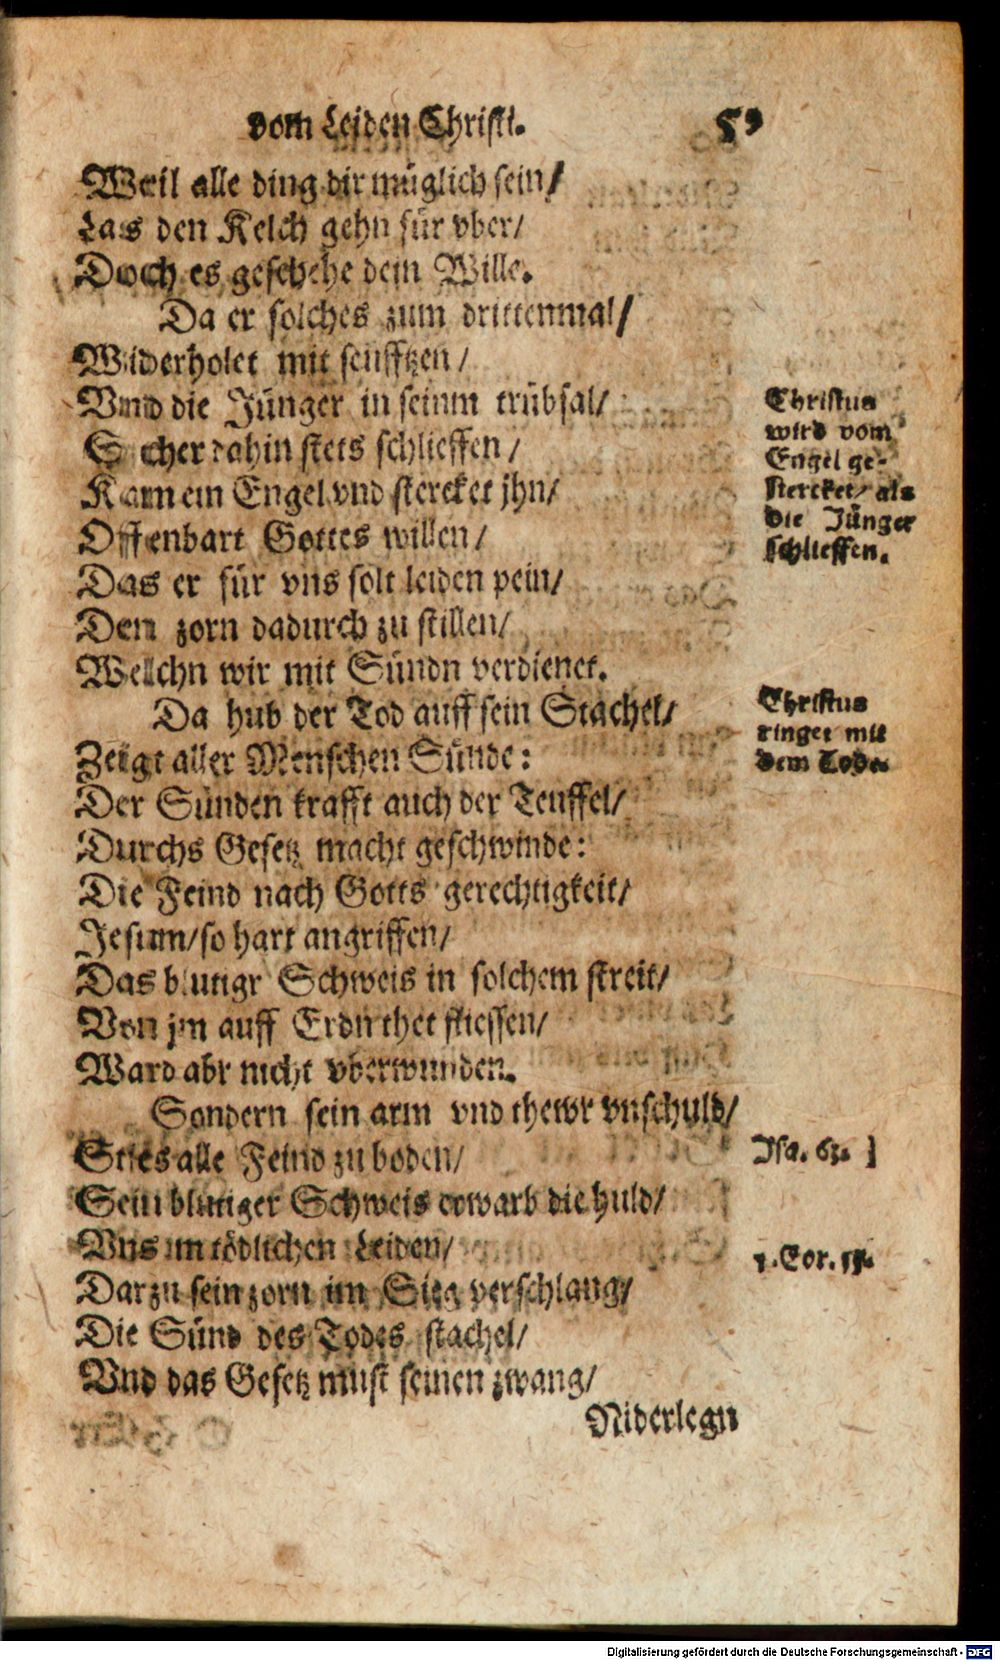 vom Leiden Christi. 59
Weil alle ding dir müglich sein/
Las den Kelch gehn für vber/
Doch es geschehe dein Wille.
Da er solches zum drittenmal/
Widerholet mit seufftzen/
Vnd die Jünger in seinm trübsal/
Sicher dahin stets schlieffen/
Kam ein Engel vnd stercket jhn/
Offenbart Gottes willen/
Das er für vns solt leiden pein/
Den zorn dadurch zu stillen/
Welchn wir mit Sündn verdienet.
Christus
wird vom
Engel ge-
stercket/ als
die Jünger
schlieffen.
Da hub der Tod auff sein Stachel/
Zeigt aller Menschen Sünde:
Der Sünden krafft auch der Teuffel/
Durchs Gesetz macht geschwinde:
Die Feind nach Gotts gerechtigkeit/
Jesum/ so hart angriffen/
Das blutigr Schweis in solchem streit/
Von jm auff Erdn thet fliessen/
Ward abr nicht vberwunden.
Christus
ringet mit
dem Tode.
Sondern sein arm vnd thewr vnschuld/
Sties alle Feind zu boden/
Sein blutiger Schweis erwarb die huld/
Vns im tödlichen Leiden/
Darzu sein zorn im Sieg verschlang/
Die Sünd des Todes stachel/
Vnd das Gesetz must seinen zwang/
Jsa. 63.
1. Cor. 15.
Niderlegn
Digitalisierung gefördert durch die Deutsche Forschungsgemeinschaft - DFG